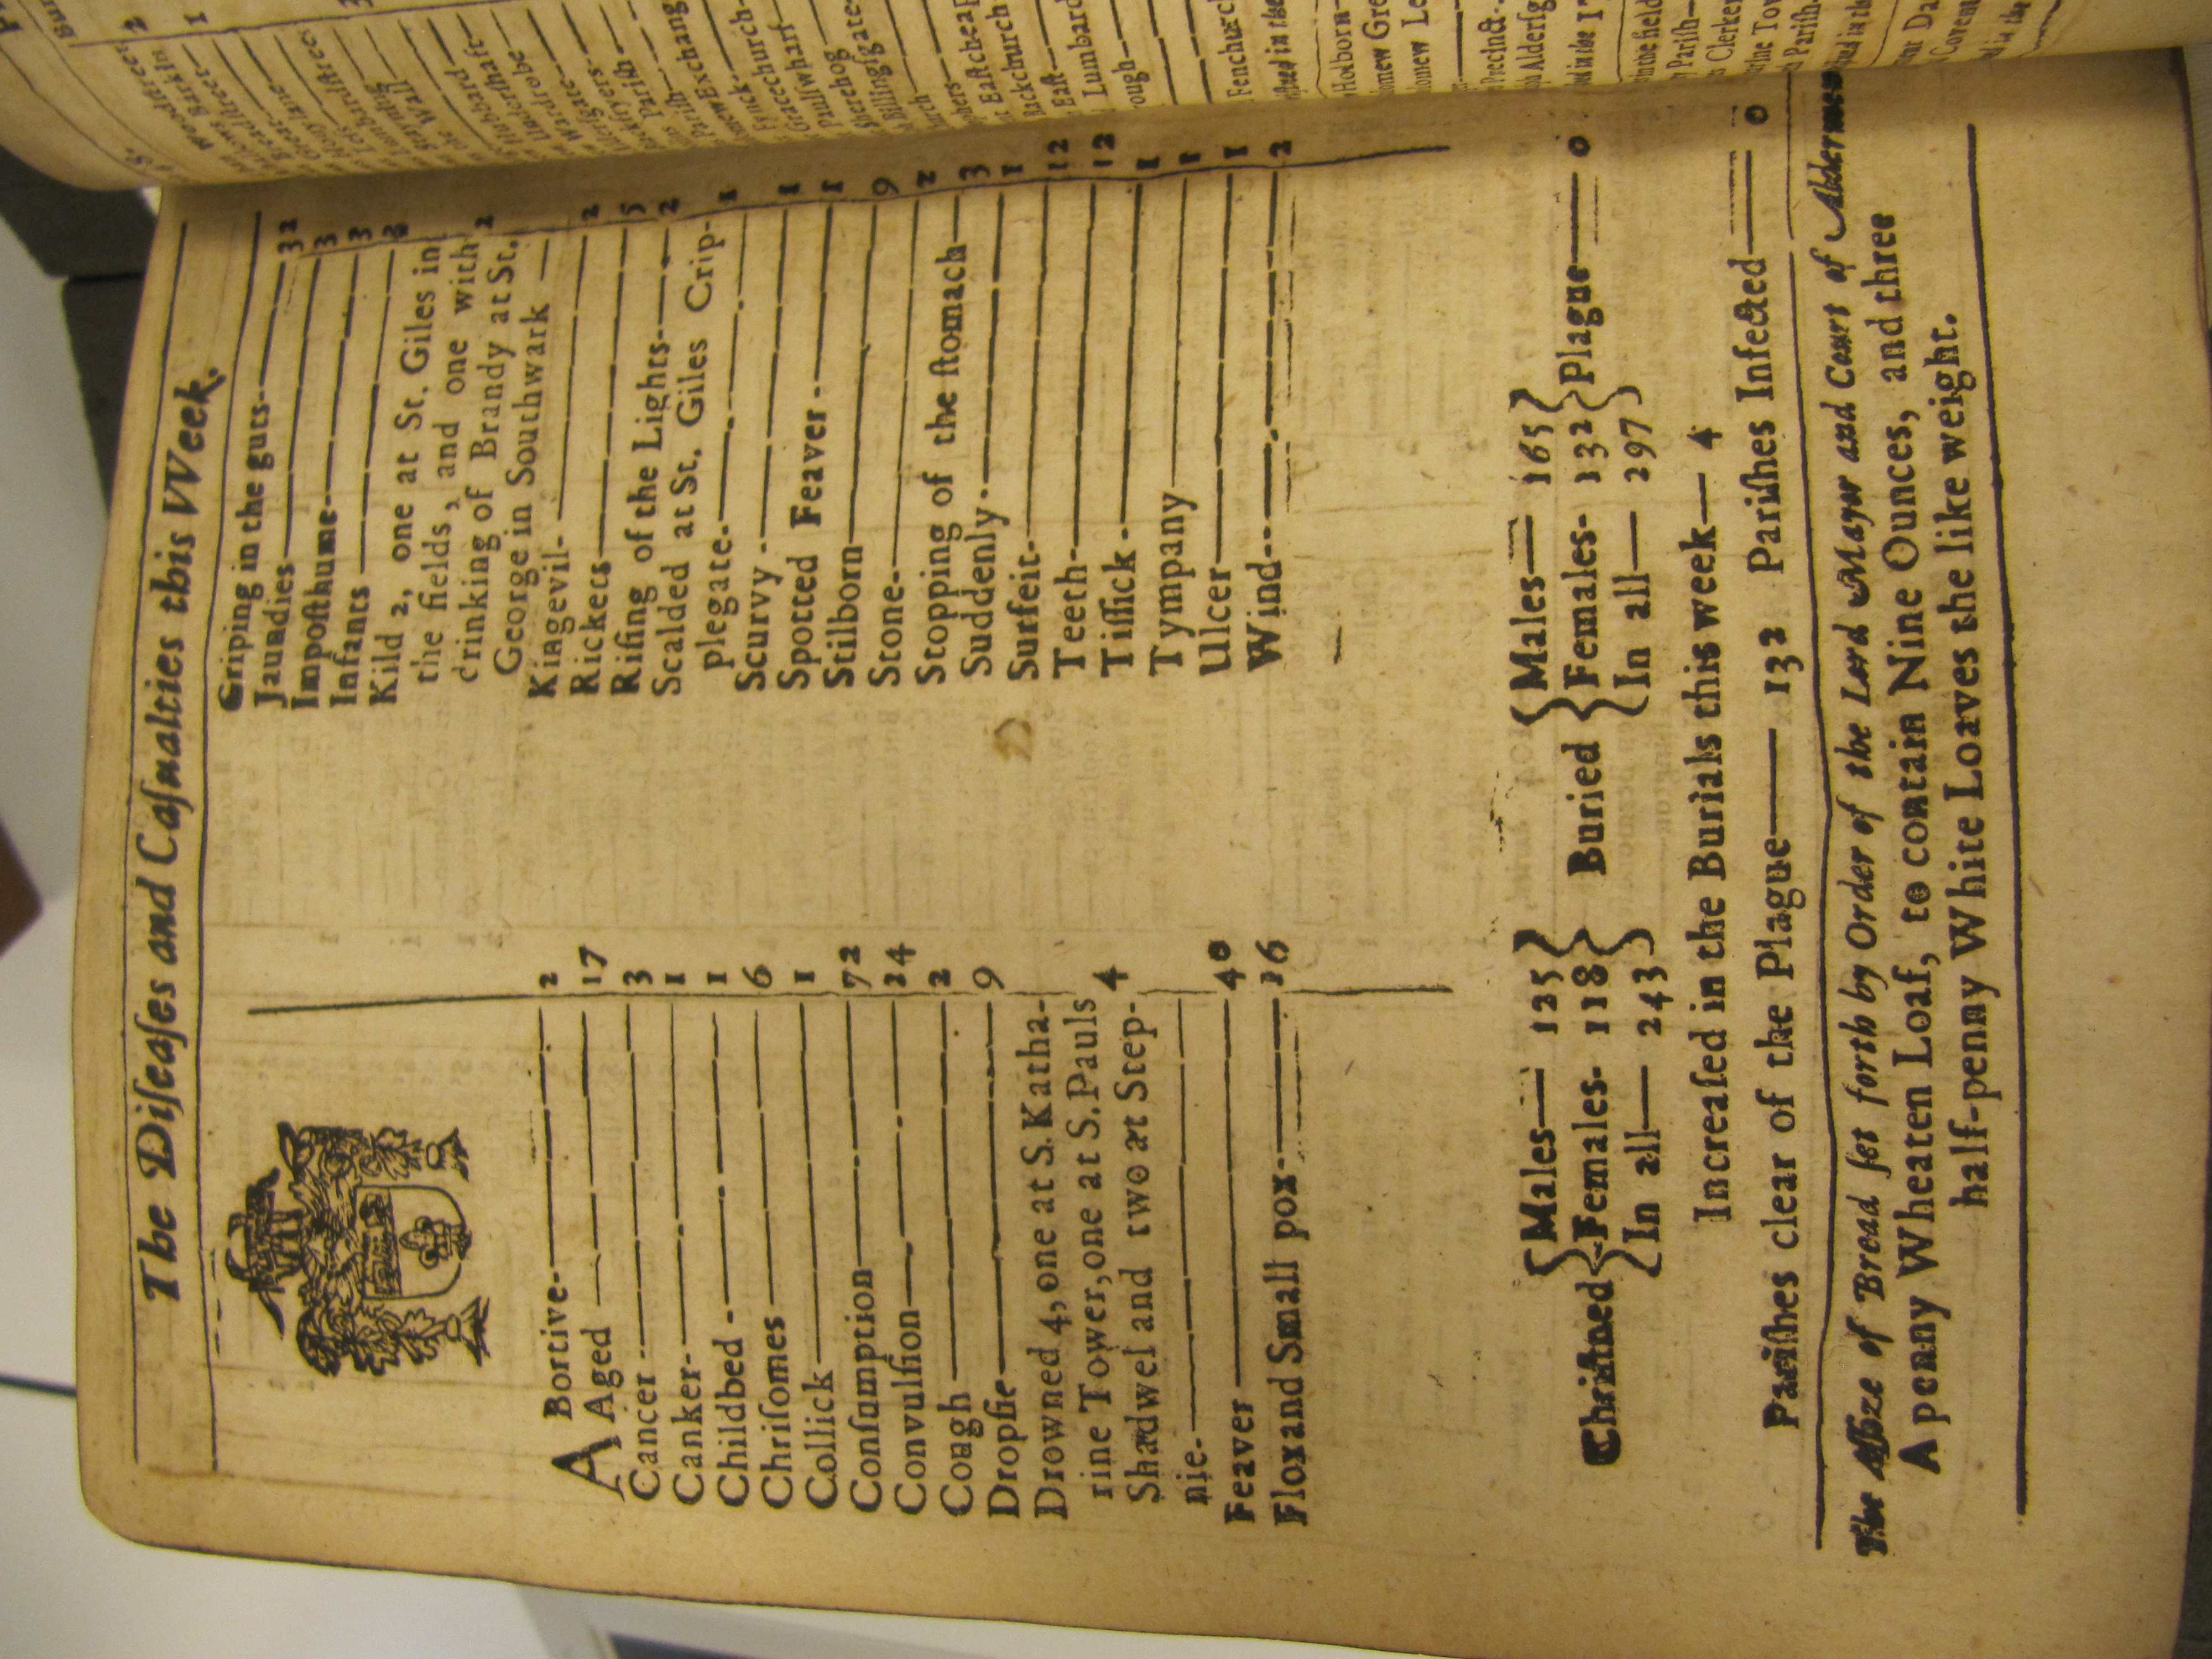 The Diſeaſes and Caſualties this Week.
A Bortive 2
Aged 17
Cancer 3
Canker 1
Childbed 1
Chriſomes 6
Collick 1
Conſumption 72
Convulſion 24
Cough 2
Dropſie 9
Drowned 4, one at S. Katha-
rine Tower, one at S. Pauls
Shadwel and two at Step- 4
nie
Feaver 40
Flox and Small pox 16
Griping in the guts 32
Jaundies 3
Impoſthume 3
Infants 3
Kild 2, one at St. Giles in
the fields, and one with
drinking of Brandy at St. 2
George in Southwark
Kingevil 2
Rickets 5
Riſing of the Lights 2
Scalded at St. Giles Crip-
plegate 1
Scurvy 1
Spotted Feaver 1
Stilborn 9
Stone 2
Stopping of the ſtomach 3
Suddenly 1
Surfeit 12
Teeth 12
Tiſſick 1
Tympany 1
Ulcer 1
Wind 2
Males 125 Males 165
Chriſtned Females 118 Buried Females 132 Plague 0
In all 243 In all 297
Increaſed in the Burials this week 4
Pariſhes clear of the Plague 132 Pariſhes Infected 0
The Aſſize of Bread ſet forth by Order of the Lord Mayor and Court of Aldermen
A penny Wheaten Loaf, to contain Nine Ounces, and three
half-penny White Loaves the like weight.